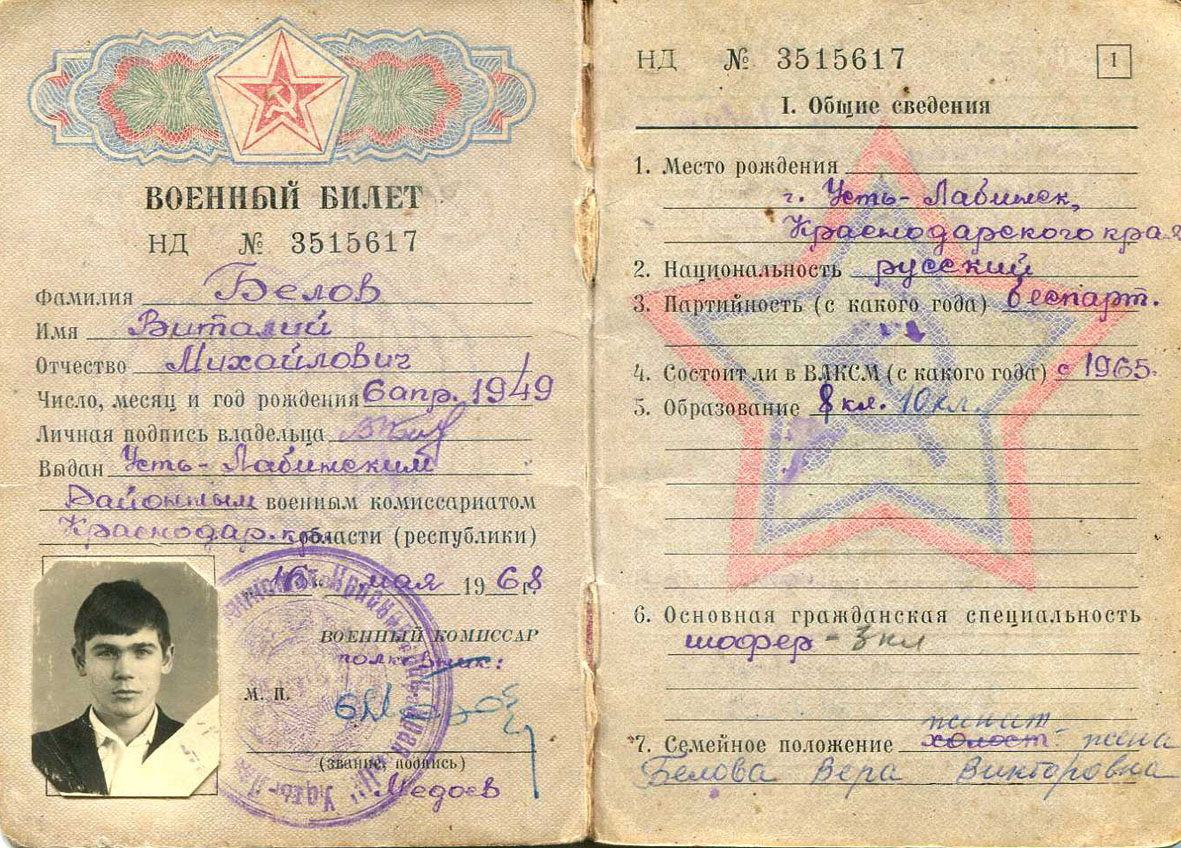 ВОЕННЫЙ БИЛЕТ
НД № 3515617
Фамилия Белов
Имя Виталий
Отчество Михайлович
Число, месяц и год рождения 6 апр. 1949
Личная подпись владельца
Выдан Усть-Лабинским
Районным военным комиссариатом
Краснодар. края области (республики)
16 мая 1968 г.
ВОЕННЫЙ КОМИССАР
полковник:
М. П.
(звание, подпись)
Медоев
НД № 3515617
1
I. Общие сведения
1. Место рождения
г. Усть-Лабинск,
Краснодарского края
2. Национальность русский
3. Партийность (с какого года) беспарт.
4. Состоит ли в ВЛКСМ (с какого года) с 1965.
5. Образование 8 кл. 10 кл.
6. Основная гражданская специальность
шофер - 3 кл
7. Семейное положение холост женат - жена
Белова Вера Викторовна